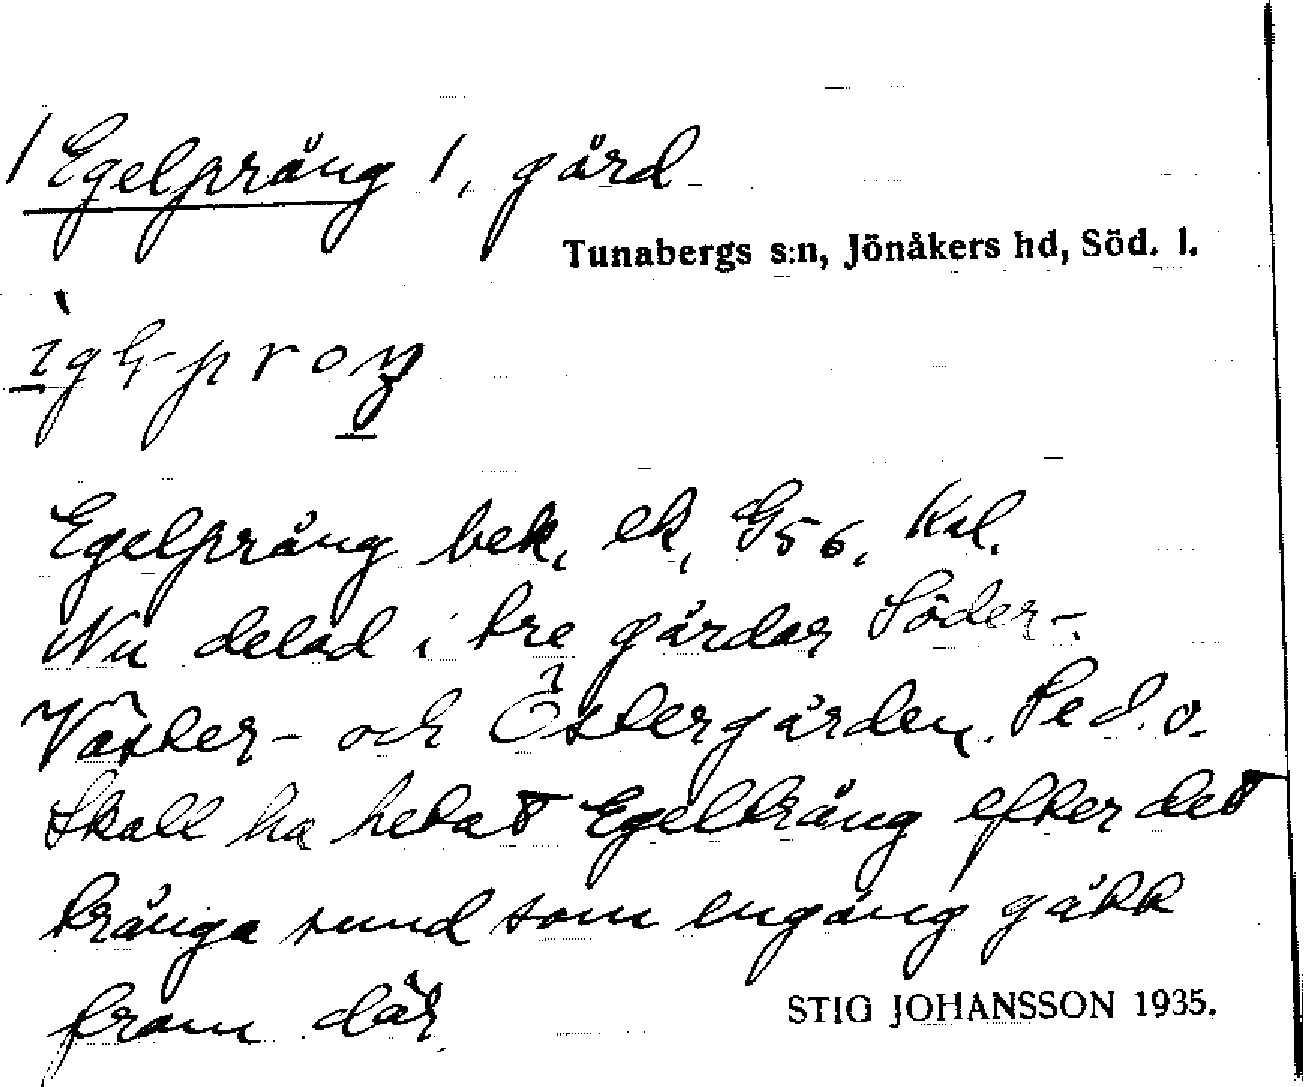 /Egelpräng /, gård
Tunabergs s:n, Jönåkers hd, Söd. l.
Egelpräng bek. ek. G56. Kal.
Nu delad i tre gårdar Söder-
Väster- och Östergården. Ped.o.
Skall ha hetat Egelträng efter det
trånga sund som engång gått
fram där
STIG JOHANSSON 1935.